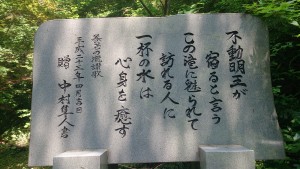 不動明王が
宿ると言う
この滝に魅られて
訪れる人に
一杯の水は
心身を癒す
平成二十三年四月吉日
贈 中村隼人書